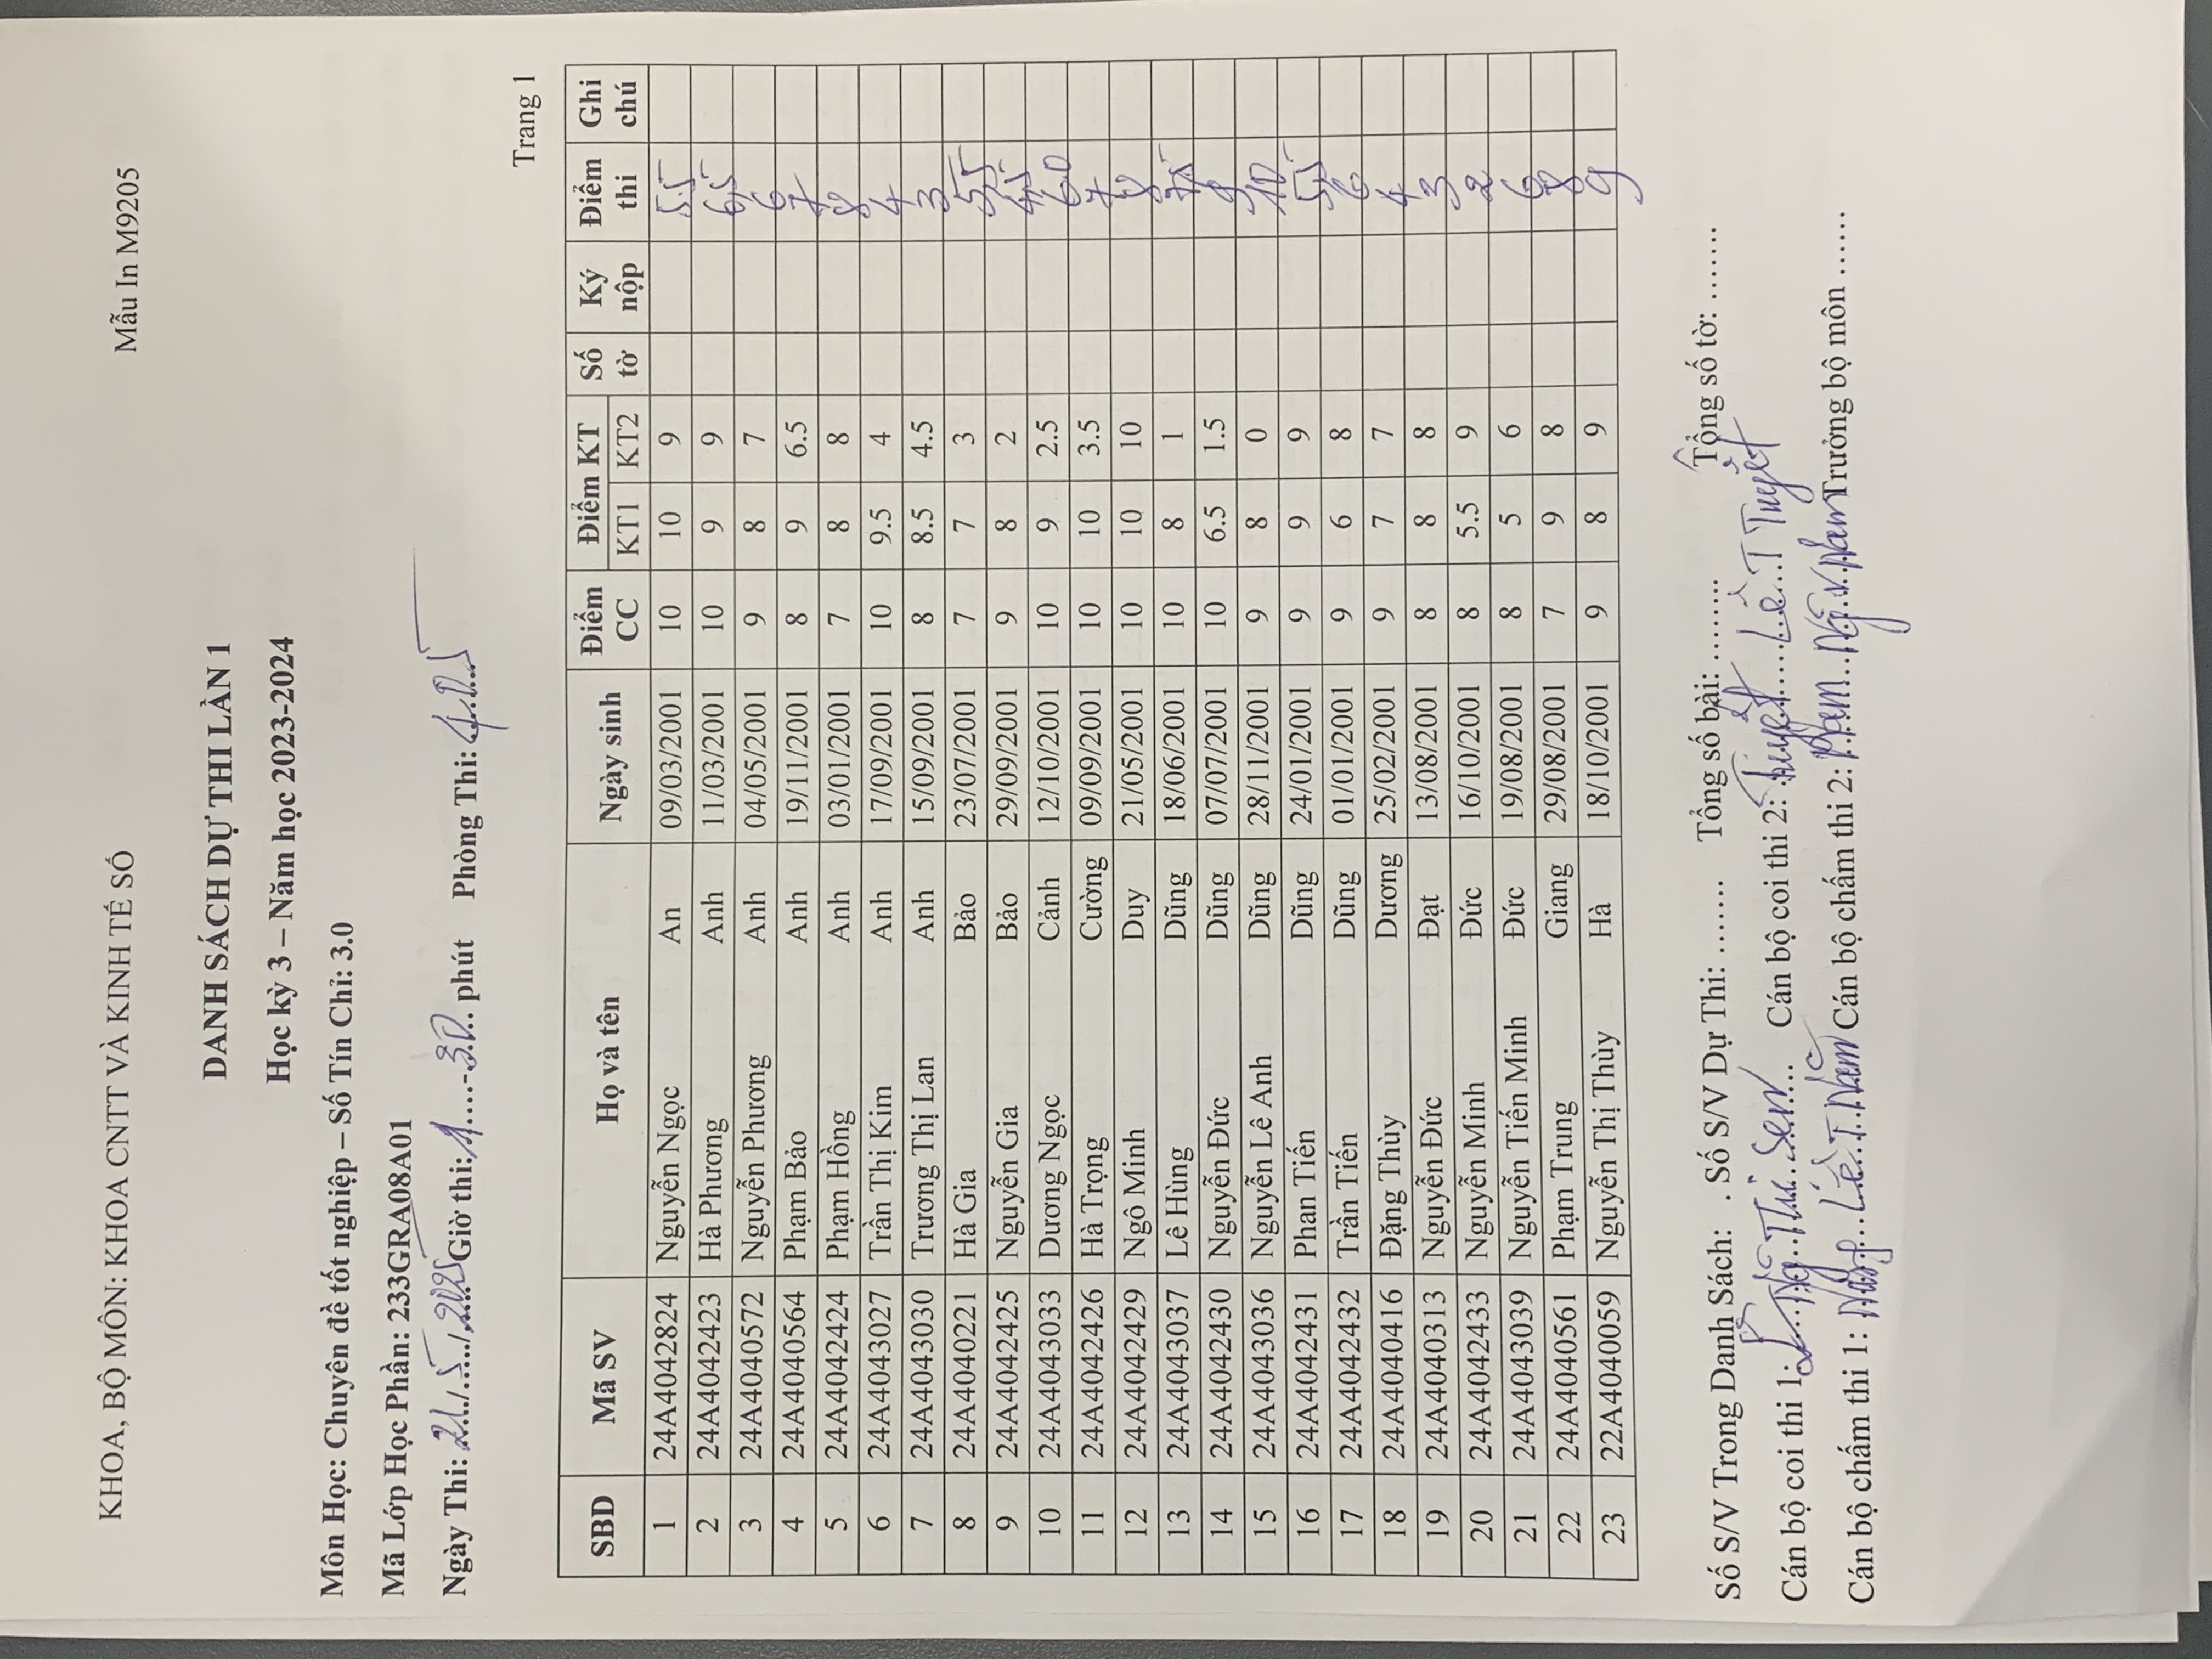 KHOA, BỘ MÔN: KHOA CNTT VÀ KINH TẾ SỐ Mẫu In M9205
DANH SÁCH DỰ THI LẦN 1
Học kỳ 3 – Năm học 2023-2024
Môn Học: Chuyên đề tốt nghiệp – Số Tín Chỉ: 3.0
Mã Lớp Học Phần: 233GRA08A01
Ngày Thi: 21/5/2025 Giờ thi: 1 - 30 phút Phòng Thi: 405
Trang 1
SBD Mã SV Họ và tên Ngày sinh Điểm CC Điểm KT KT1 KT2 Số tờ Ký nộp Điểm thi Ghi chú
1 24A4042824 Nguyễn Ngọc An 09/03/2001 10 10 9 5.5
2 24A4042423 Hà Phương Anh 11/03/2001 10 9 9 6,5
3 24A4040572 Nguyễn Phương Anh 04/05/2001 9 8 7 6
4 24A4040564 Phạm Bảo Anh 19/11/2001 8 9 6.5 7
5 24A4042424 Phạm Hồng Anh 03/01/2001 7 8 8 8
6 24A4043027 Trần Thị Kim Anh 17/09/2001 10 9.5 4 4
7 24A4043030 Trương Thị Lan Anh 15/09/2001 8 8.5 4.5 3
8 24A4040221 Hà Gia Bảo 23/07/2001 7 7 3 5,5
9 24A4042425 Nguyễn Gia Bảo 29/09/2001 9 8 2 4,5
10 24A4043033 Dương Ngọc Cảnh 12/10/2001 10 9 2.5 6.0
11 24A4042426 Hà Trọng Cường 09/09/2001 10 10 3.5 7
12 24A4042429 Ngô Minh Duy 21/05/2001 10 10 10 8
13 24A4043037 Lê Hùng Dũng 18/06/2001 10 8 1 7,5
14 24A4042430 Nguyễn Đức Dũng 07/07/2001 10 6.5 1.5 9
15 24A4043036 Nguyễn Lê Anh Dũng 28/11/2001 9 8 0 10
16 24A4042431 Phan Tiến Dũng 24/01/2001 9 9 9 5,5
17 24A4042432 Trần Tiến Dũng 01/01/2001 9 6 8 6
18 24A4040416 Đặng Thùy Dương 25/02/2001 9 7 7 4
19 24A4040313 Nguyễn Đức Đạt 13/08/2001 8 8 8 3
20 24A4042433 Nguyễn Minh Đức 16/10/2001 8 5.5 9 2
21 24A4043039 Nguyễn Tiến Minh Đức 19/08/2001 8 5 6 6
22 24A4040561 Phạm Trung Giang 29/08/2001 7 9 8 8
23 22A4040059 Nguyễn Thị Thùy Hà 18/10/2001 9 8 9 9
Số S/V Trong Danh Sách: . Số S/V Dự Thi: ....... Tổng số bài: ........ Tổng số tờ: .......
Cán bộ coi thi 1: Ngô Thị Sen Cán bộ coi thi 2: Tuyết Lê T Tuyết
Cán bộ chấm thi 1: Lê T Năm Cán bộ chấm thi 2: Nam Ngô V. Nam Trưởng bộ môn ......